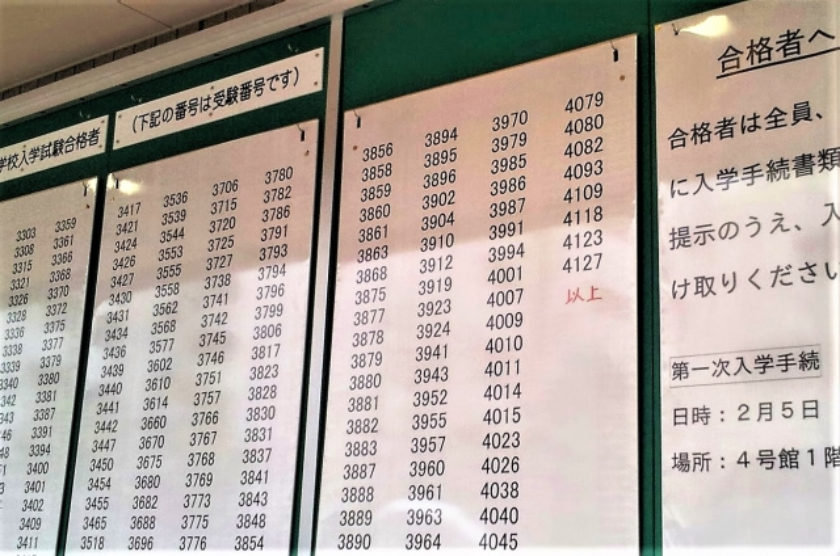 学校入学試験合格者
3303 3359
3308 3361
3315 3366
3321 3368
3326 3370
3328 3372
3336 3375
3338 3377
3339 3379
3340 3380
3381
3387
3391
3394
3400
3401
3402
3409
3411
(下記の番号は受験番号です)
3417 3536 3706 3780
3421 3539 3715 3782
3424 3544 3720 3786
3426 3553 3725 3791
3427 3555 3727 3793
3430 3558 3738 3794
3431 3562 3741 3796
3434 3568 3742 3799
3436 3577 3745 3806
3439 3602 3746 3817
3440 3610 3751 3823
3441 3614 3757 3828
3442 3660 3766 3830
3447 3670 3767 3831
3450 3675 3768 3837
3454 3680 3769 3841
3455 3682 3773 3843
3465 3688 3775 3848
3518 3696 3776 3854
3856 3894 3970 4079
3858 3895 3979 4080
3859 3896 3985 4082
3860 3902 3986 4093
3861 3904 3987 4109
3863 3910 3991 4118
3868 3912 3994 4123
3875 3919 4001 4127
3877 3923 4007 以上
3878 3924 4009
3879 3941 4010
3880 3943 4011
3881 3952 4014
3882 3955 4015
3883 3957 4023
3887 3960 4026
3888 3961 4038
3889 3963 4040
3890 3964 4045
合格者へ
合格者は全員、
に入学手続書類
提示のうえ、入
け取りください
第一次入学手続
日時:2月5日
場所:4号館1階